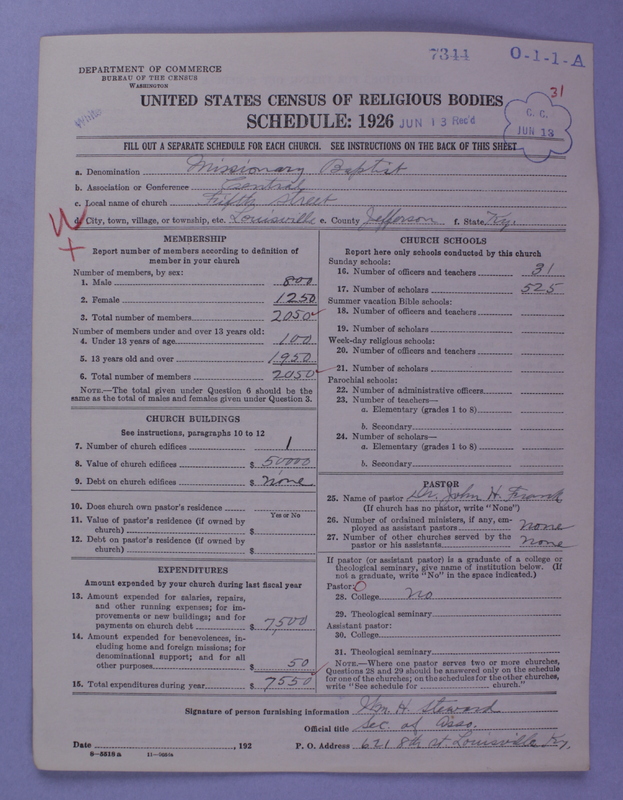 7344 O-1-1-A
DEPARTMENT OF COMMERCE
BUREAU OF THE CENSUS
WASHINGTON
31
UNITED STATES CENSUS OF RELIGIOUS BODIES
SCHEDULE: 1926 JUN 13 Rec'd
C. C.
JUN 13
FILL OUT A SEPARATE SCHEDULE FOR EACH CHURCH. SEE INSTRUCTIONS ON THE BACK OF THIS SHEET
a. Denomination Missionary Baptist
b. Association or Conference Central
c. Local name of church Fifth Street
d. City, town, village, or township, etc. Louisville e. County Jefferson f. State Ky.
MEMBERSHIP
Report number of members according to definition of
member in your church
Number of members, by sex:
1. Male 800
2. Female 1250
3. Total number of members 2050
Number of members under and over 13 years old:
4. Under 13 years of age 100
5. 13 years old and over 1950
6. Total number of members 2050
NOTE.—The total given under Question 6 should be the
same as the total of males and females given under Question 3.
CHURCH BUILDINGS
See instructions, paragraphs 10 to 12
7. Number of church edifices 1
8. Value of church edifices $ 50000
9. Debt on church edifices $ none
10. Does church own pastor's residence
Yes or No
11. Value of pastor's residence (if owned by
church) $
12. Debt on pastor's residence (if owned by
church) $
EXPENDITURES
Amount expended by your church during last fiscal year
13. Amount expended for salaries, repairs,
and other running expenses; for im-
provements or new buildings; and for
payments on church debt $ 7,500
14. Amount expended for benevolences, in-
cluding home and foreign missions; for
denominational support; and for all
other purposes $ 50
15. Total expenditures during year $ 7550
CHURCH SCHOOLS
Report here only schools conducted by this church
Sunday schools:
16. Number of officers and teachers 31
17. Number of scholars 525
Summer vacation Bible schools:
18. Number of officers and teachers
19. Number of scholars
Week-day religious schools:
20. Number of officers and teachers
21. Number of scholars
Parochial schools:
22. Number of administrative officers
23. Number of teachers—
a. Elementary (grades 1 to 8)
b. Secondary
24. Number of scholars—
a. Elementary (grades 1 to 8)
b. Secondary
PASTOR
25. Name of pastor Dr. John H. Frank
(If church has no pastor, write "None")
26. Number of ordained ministers, if any, em-
ployed as assistant pastors none
27. Number of other churches served by the
pastor or his assistants none
If pastor (or assistant pastor) is a graduate of a college or
theological seminary, give name of institution below. (If
not a graduate, write "No" in the space indicated.)
Pastor:
28. College No
29. Theological seminary
Assistant pastor:
30. College
31. Theological seminary
NOTE.—Where one pastor serves two or more churches,
Questions 28 and 29 should be answered only on the schedule
for one of the churches; on the schedules for the other churches,
write "See schedule for church."
Signature of person furnishing information Wm. H. Steward
Official title Sec. of Asso.
Date , 192 P. O. Address 621 8th St Louisville Ky.